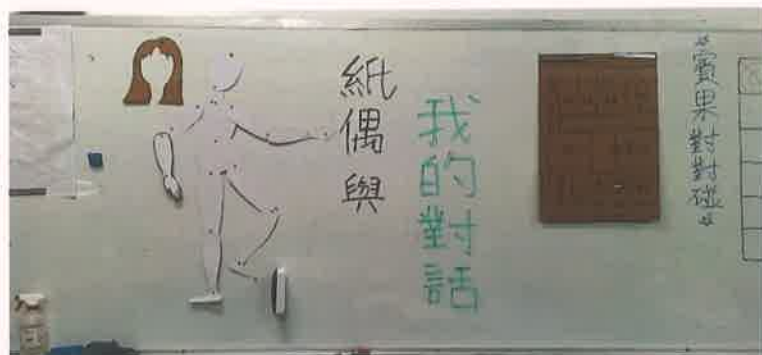 紙偶與
我的對話
☆賓果對對碰☆